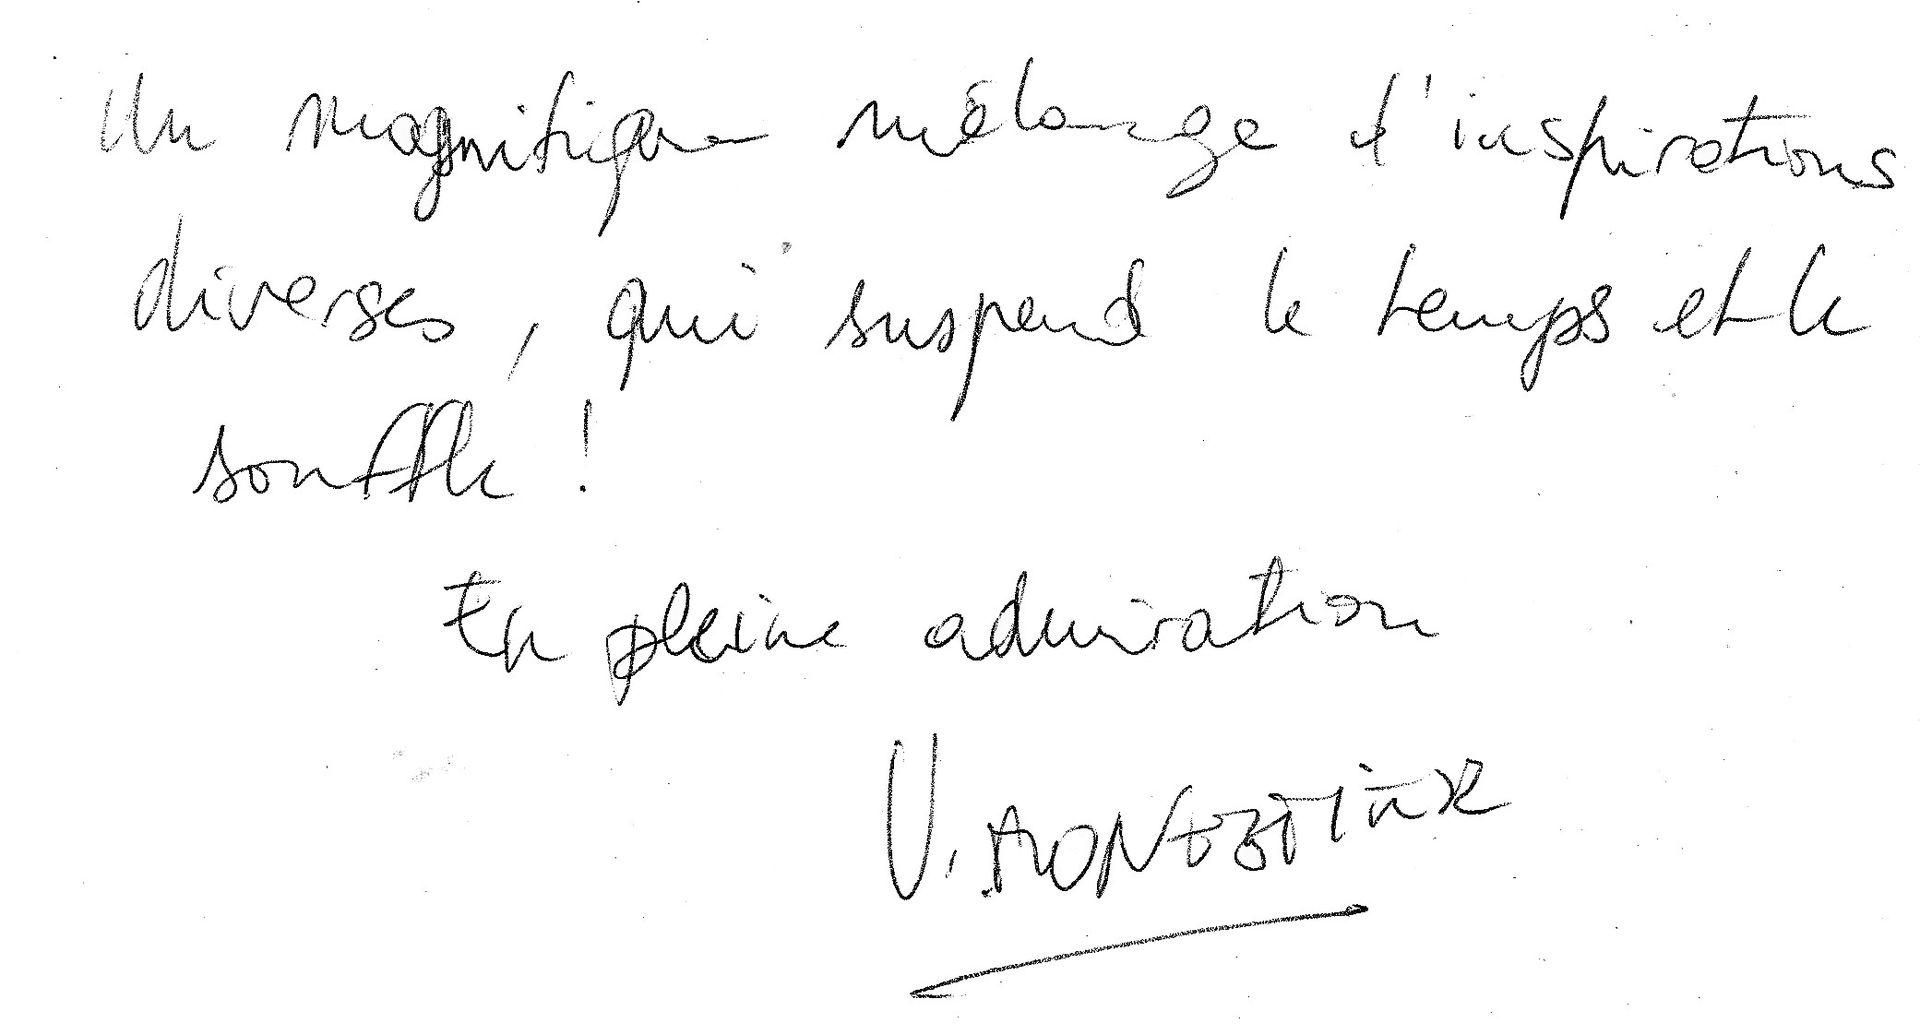 Un magnifique mélange d'inspirations
diverses, qui suspend le temps et le
souffle !
En pleine admiration
V. MONESTIER